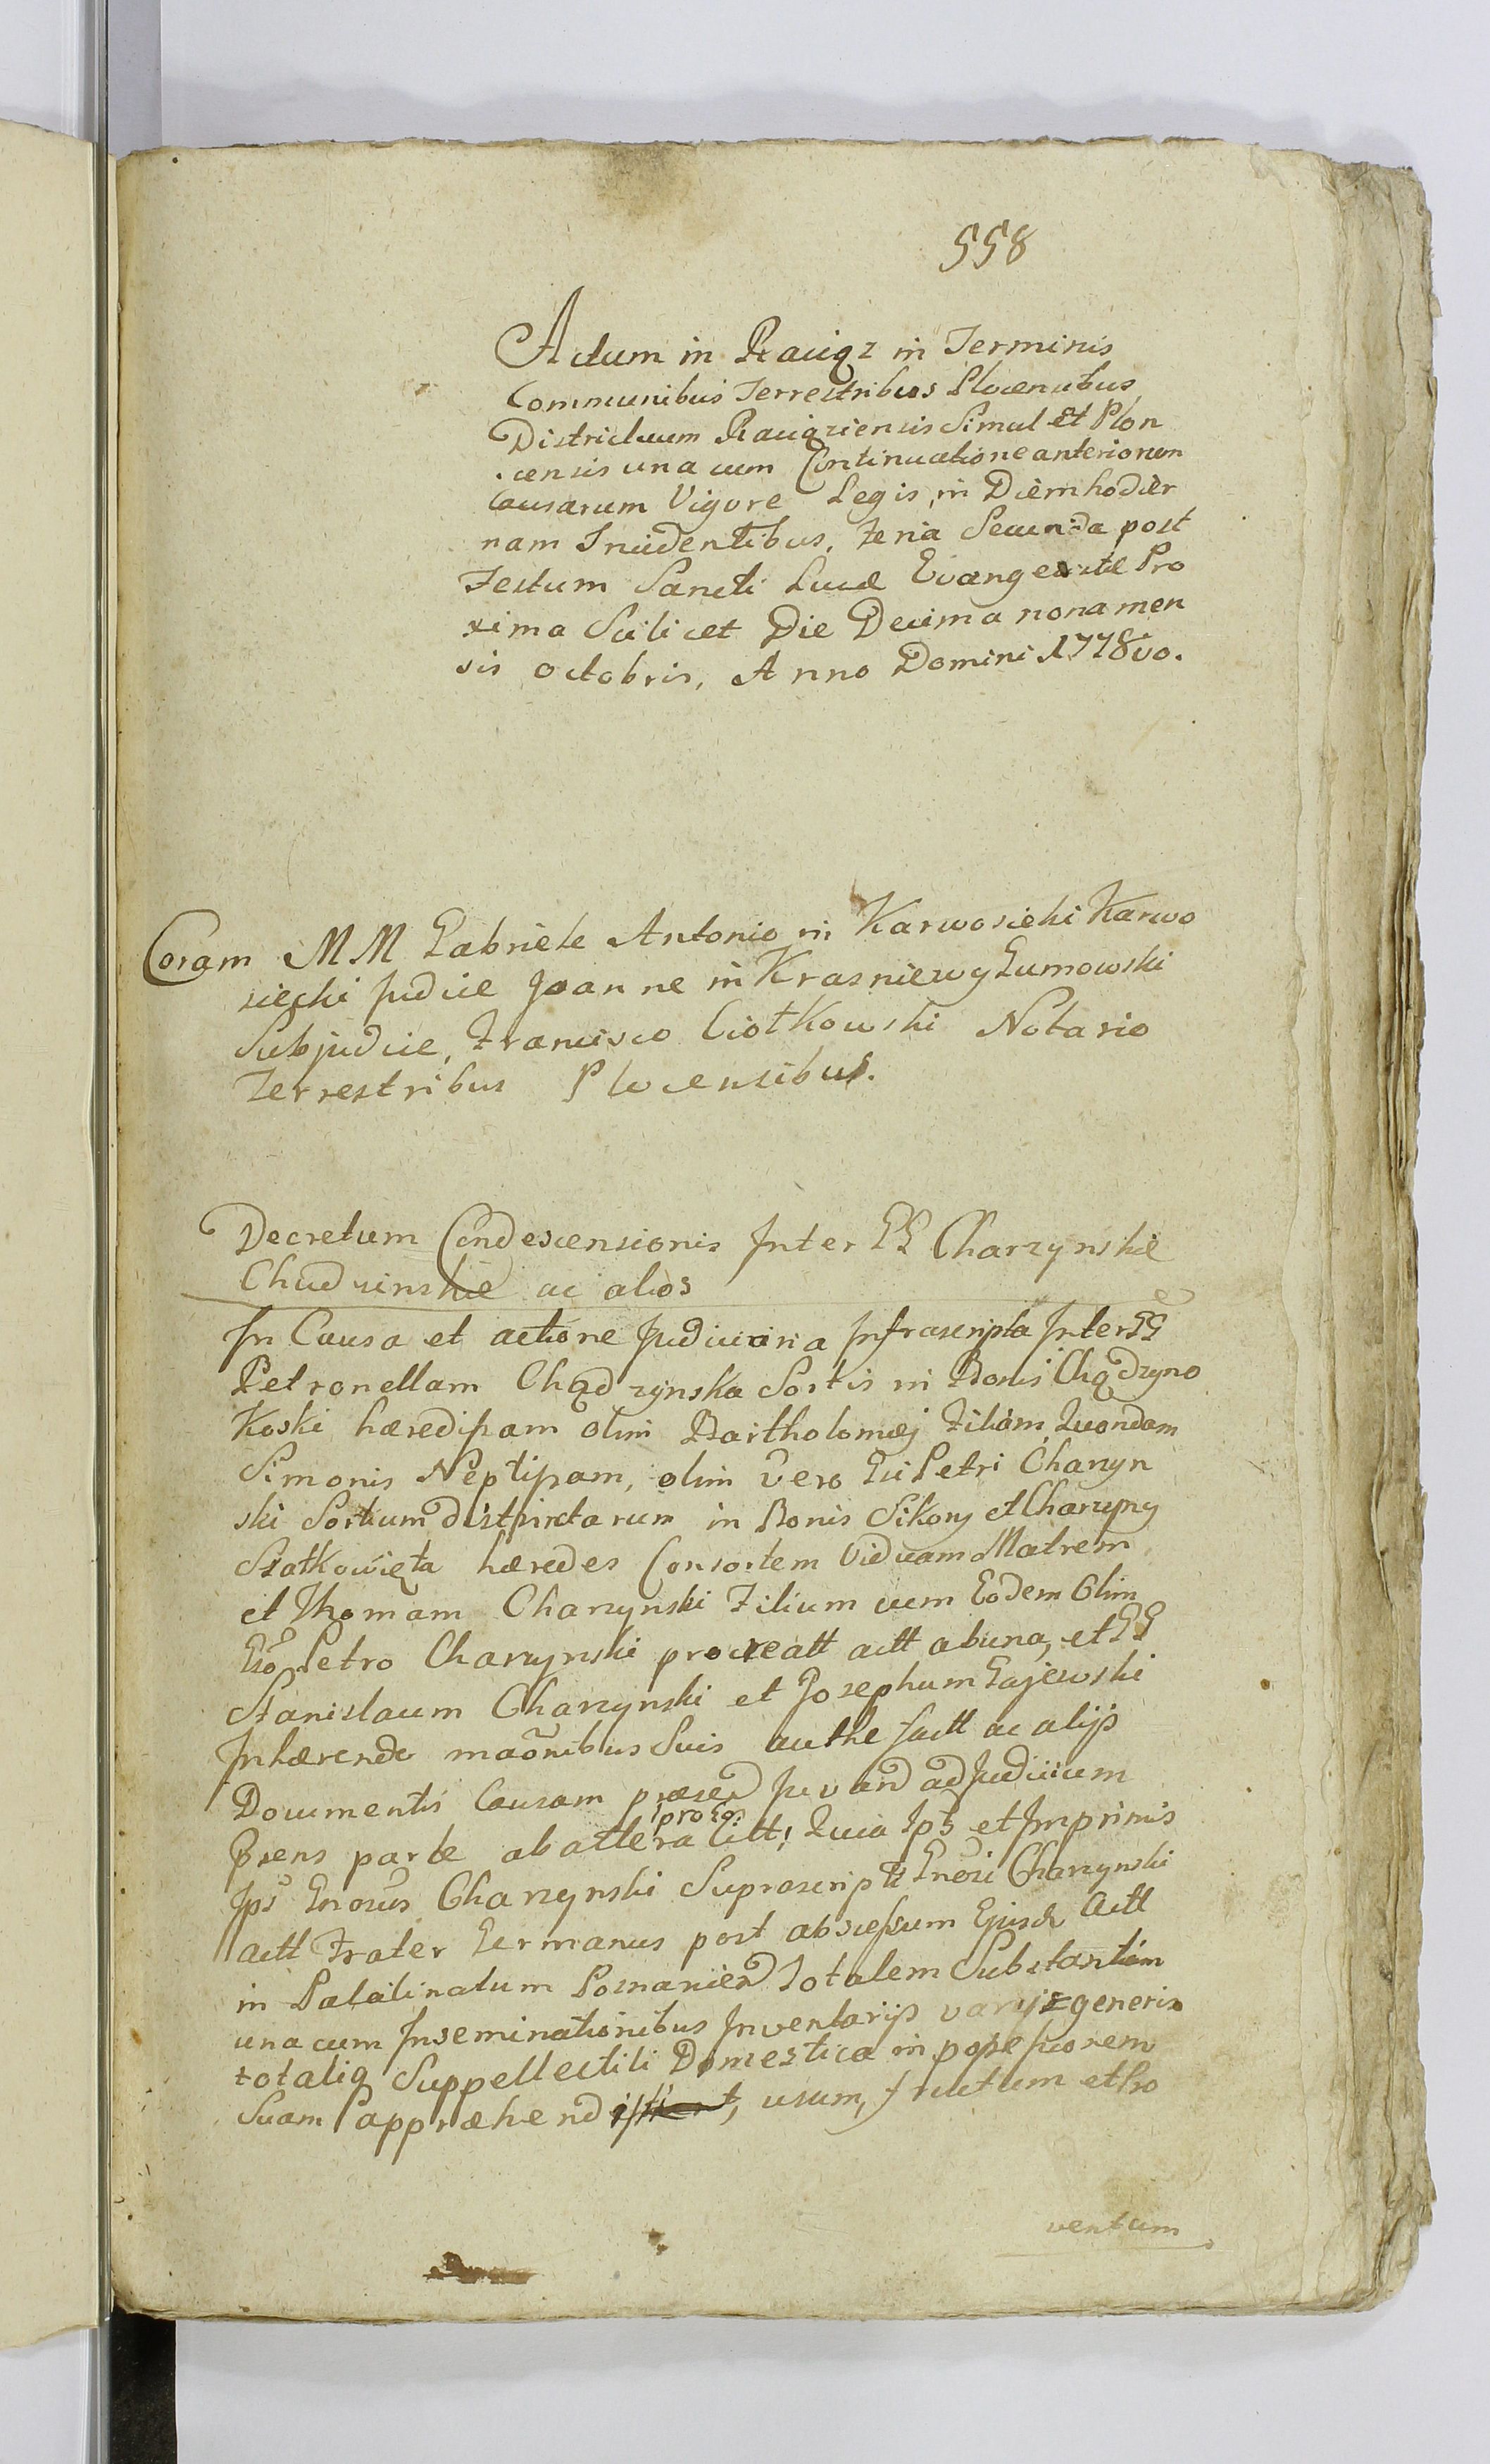 558
Actum in Raciąz in Terminis
Communibus Terrestribus Plocensibus
Districtuum Raciąziensis Simul Et Plon
censis una cum Continuatione anteriorum
Causarum Vigore Legis, in Diem hodier
nam Incidentibus, Feria Secunda post
Festum Sancti Lucæ Evangelistæ Pro
xima Scilicet Die Decima nona men
sis octobris, Anno Domini 1778vo.
Coram MM Gabriele Antonio in Karwosieki Karwo
siecki Judice Joanne in Krasniewy Gumowski
Subjudice, Francisco Ciołkowski Notario
Terrestribus Plocensibus.
Decretum Condescensionis Inter GG Charzynskie
Chudzinskie ac alios
In Causa et actione Judiciaria Infrascripta Inter GG
Petronellam Chądzynska Sortis in Bonis Chądzyno
Koski hæredissam olim Bartholomæj Filiam, Quondam
Simonis Neptissam, olim Vero Gsi Petri Charzyn
ski Sortium distinctarum in Bonis Sikory et Charzyny
Statkowięta hæredes Consortem Viduam Matrem
et Thomam Charzynski Filium cum Eodem Olim
Gso Petro Charzynski procreatt actt ab una, et GG
Stanislaum Charzynski et Josephum Gajewski
Inhærendo maōnibus Suis authe factt ac alijs
Documentis Causam præsen Juvand ad Judicium
Prens parte ab altera Citt; Quia Ips et Imprimis
pro Eo:
Ips Gnosus Charzynski Suprascripti Gnosi Charzynski
actt Frater Germanus post abscessum Ejusd Actt
in Palatinatum Posnanien Totalem Substantiam
una cum Inseminationibus Inventarijs varijs generis
totaliq Suppellectili Domestica in possessionem
Suam appræhend, usum, fructum et Pro
ventum